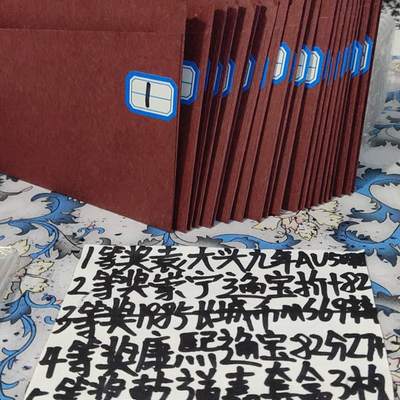 1
1等奖袁大头九年AU50
2等奖崇宁通宝折十82
3等奖1985长城币MS69
4等奖康熙通宝82分
5等奖
套
3枚